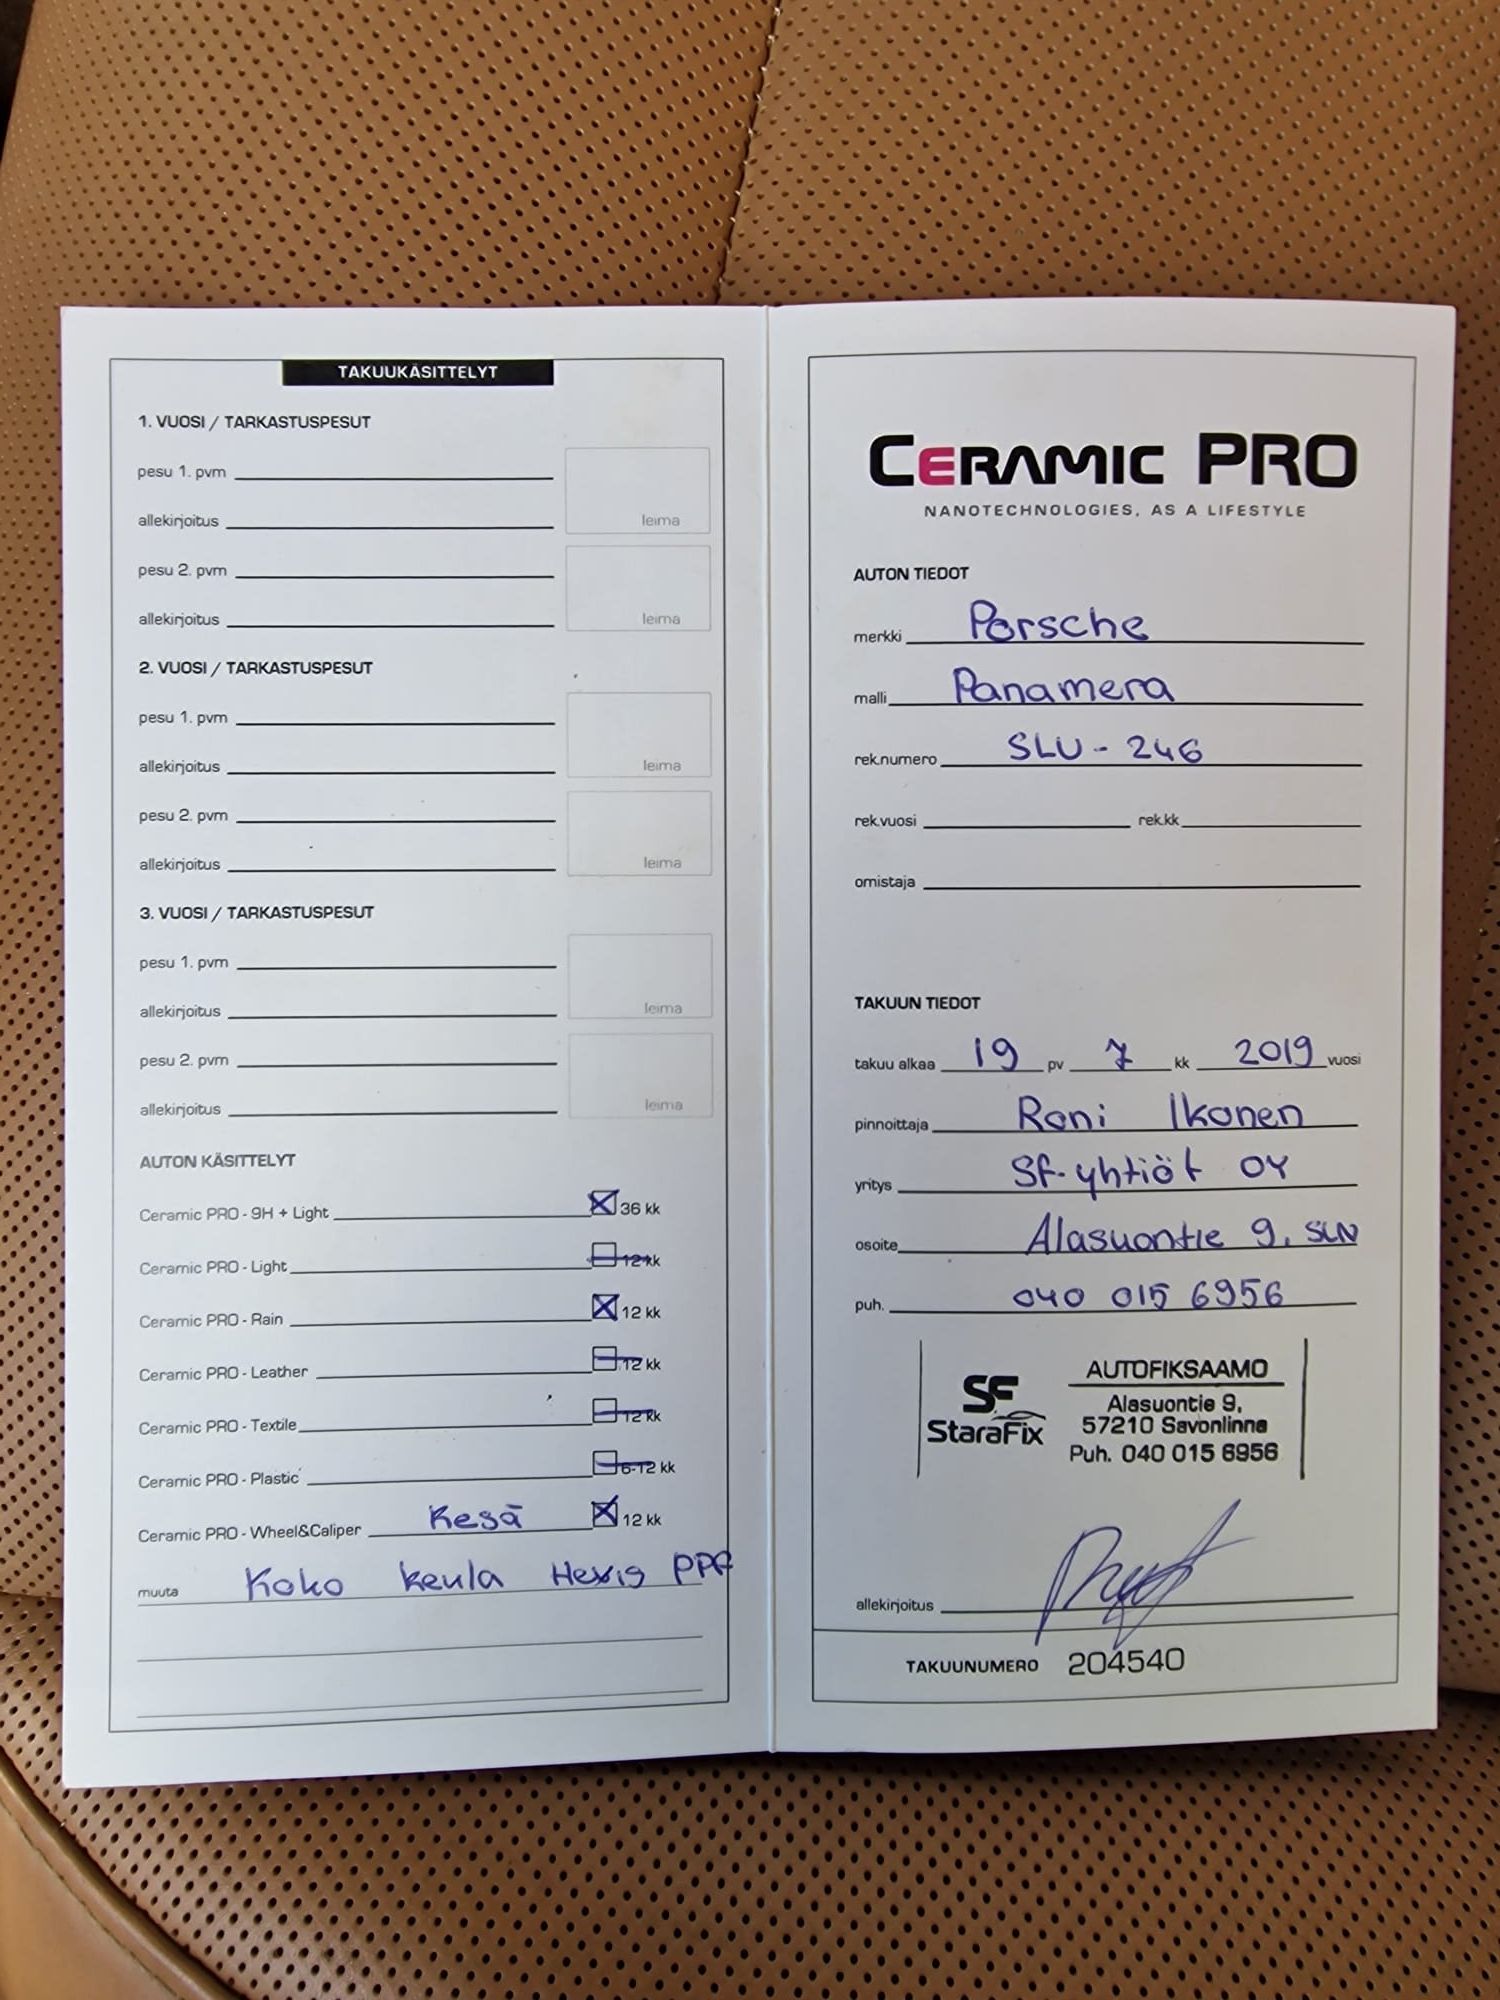 TAKUUKÄSITTELYT
1. VUOSI / TARKASTUSPESUT
pesu 1. pvm
allekirjoitus
leima
pesu 2. pvm
allekirjoitus
leima
2. VUOSI / TARKASTUSPESUT
pesu 1. pvm
allekirjoitus
leima
pesu 2. pvm
allekirjoitus
leima
3. VUOSI / TARKASTUSPESUT
pesu 1. pvm
allekirjoitus
leima
pesu 2. pvm
allekirjoitus
leima
AUTON KÄSITTELYT
Ceramic PRO - 9H + Light 36 kk
Ceramic PRO - Light 12 kk
Ceramic PRO - Rain 12 kk
Ceramic PRO - Leather 12 kk
Ceramic PRO - Textile 12 kk
Ceramic PRO - Plastic 6-12 kk
Ceramic PRO - Wheel&Caliper Kesä 12 kk
muuta Koko keula Hexis PPF
CERAMIC PRO
NANOTECHNOLOGIES, AS A LIFESTYLE
AUTON TIEDOT
merkki Porsche
malli Panamera
rek.numero SLU - 246
rek.vuosi rek.kk
omistaja
TAKUUN TIEDOT
takuu alkaa 19 pv 7 kk 2019 vuosi
pinnoittaja Roni Ikonen
yritys SF-yhtiöt OY
osoite Alasuontie 9, SLN
puh. 040 015 6956
SF
StaraFix
AUTOFIKSAAMO
Alasuontie 9,
57210 Savonlinna
Puh. 040 015 6956
allekirjoitus
TAKUUNUMERO 204540